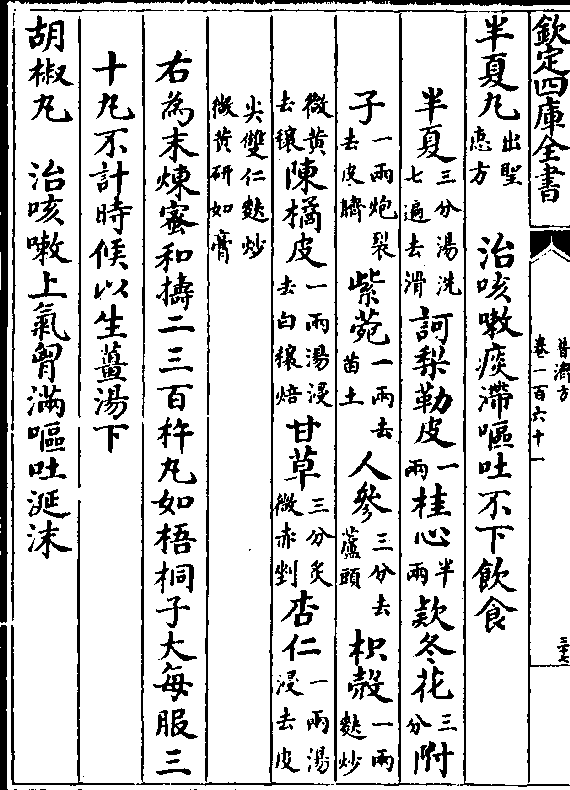 欽定四庫全書 普濟方 卷一百六十一 三十七
半夏丸 出聖惠方 治咳嗽痰滯嘔吐不下飲食
半夏 三分湯洗七遍去滑 訶梨勒皮 一兩 桂心 半兩 款冬花 三分 附
子 一兩炮裂去皮臍 紫菀 一兩去苗土 人參 三分去蘆頭 枳殼 一兩麩炒
微黃去穰 陳橘皮 一兩湯浸去白穰焙 甘草 三分炙微赤剉 杏仁 一兩湯浸去皮
尖雙仁麩炒微黃研如膏
右為末煉蜜和擣二三百杵丸如梧桐子大每服三
十丸不計時候以生薑湯下
胡椒丸 治咳嗽上氣胷滿嘔吐涎沫